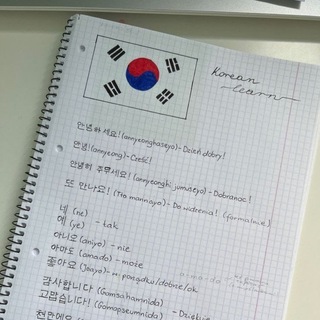 Korean
learn
안녕하세요! (annyeonghaseyo) - Dzień dobry!
안녕! (annyeong) - Cześć!
안녕히 주무세요! (annyeonghi jumuseyo) - Dobranoc!
또 만나요! (Tto mannayo) - Do widzenia! (formalne)
네 (ne)
예 (ye) - tak
아니요 (aniyo) - nie
아마도 (amado) - może
좋아요 (Joayo) - w porządku/dobrze/ok
감사합니다 (Gamsahamnida) - Dziękuję
고맙습니다! (Gomapseumnida)
천만에요